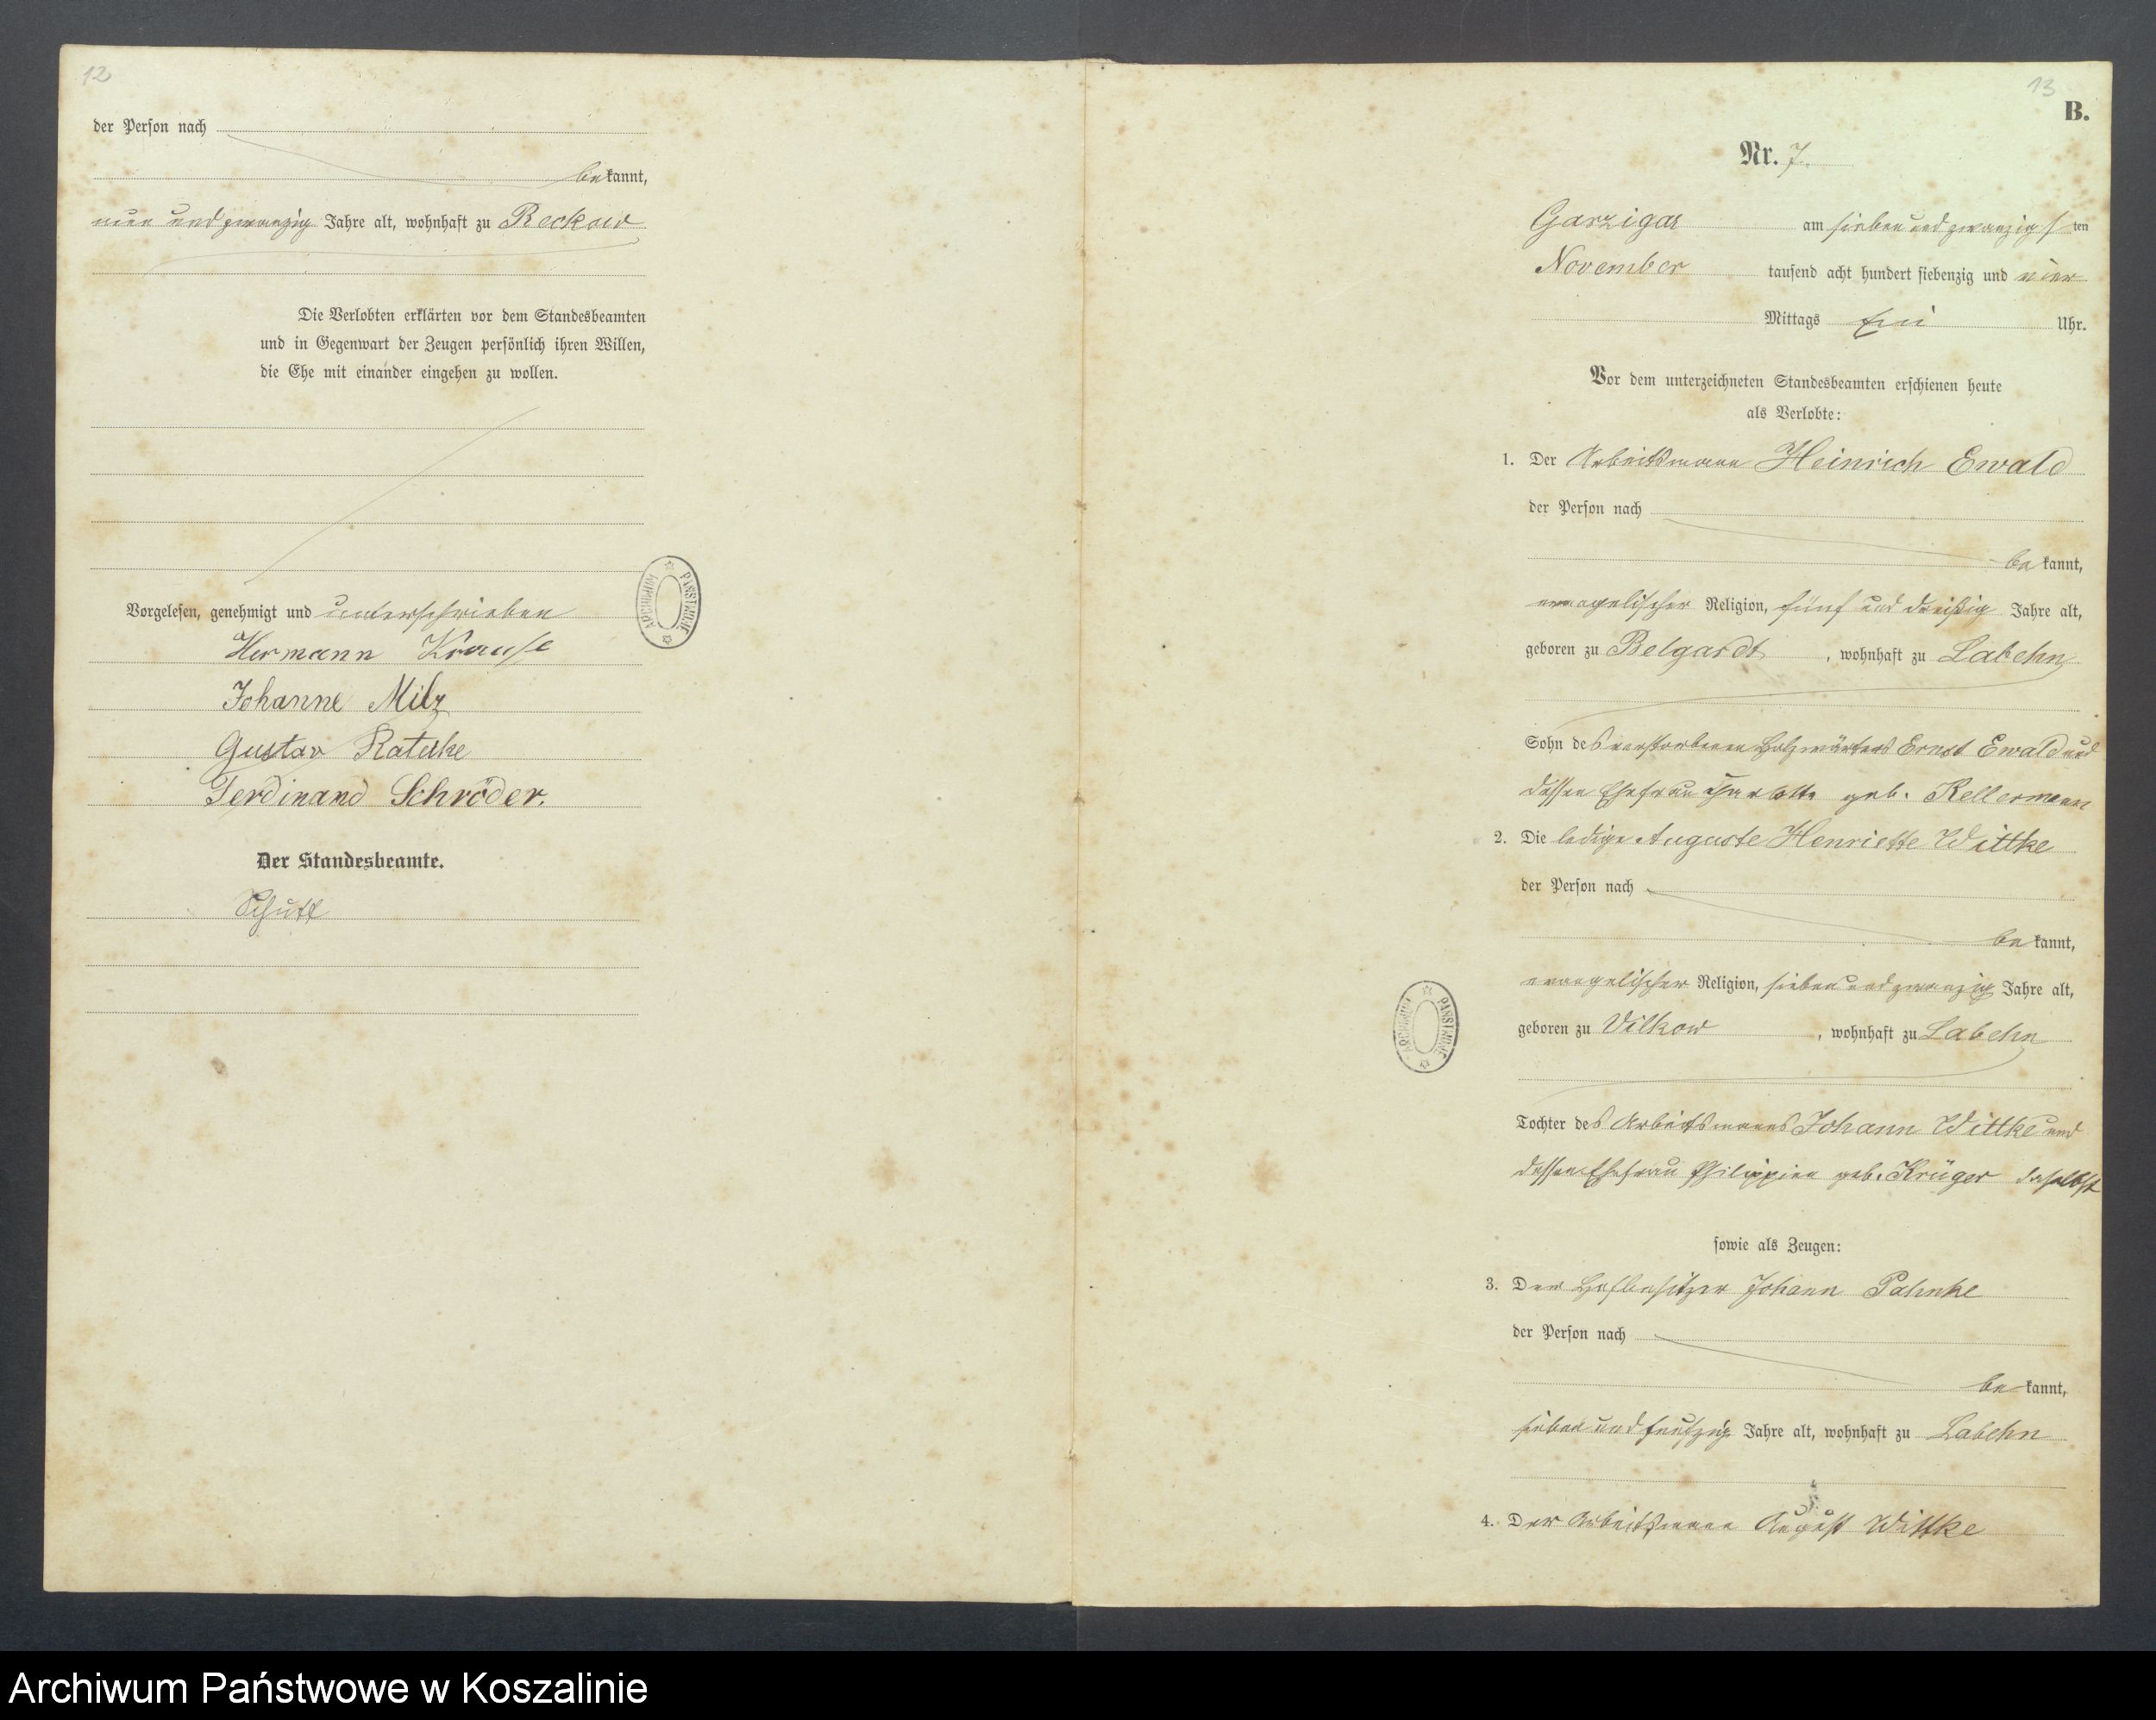 12
der Person nach
bekannt,
neun und zwanzig Jahre alt, wohnhaft zu Reckow
Die Verlobten erklärten vor dem Standesbeamten
und in Gegenwart der Zeugen persönlich ihren Willen,
die Ehe mit einander eingehen zu wollen.
Vorgelesen, genehmigt und unterschrieben
Hermann Krause
Johanne Milz
Gustav Ratuhke
Ferdinand Schröder.
Der Standesbeamte.
ARCHIWUM PAŃSTWOWE
13
B.
Nr. 7.
Garzigar am sieben und zwanzigsten
November tausend acht hundert siebenzig und vier
Mittags Uhr.
Vor dem unterzeichneten Standesbeamten erschienen heute
als Verlobte:
1. Der Arbeitsmann Heinrich Ewald
der Person nach
bekannt,
evangelischer Religion, fünf und dreißig Jahre alt,
geboren zu Belgardt, wohnhaft zu Labehn
Sohn des verstorbenen Holzwärters Ernst Ewald und
dessen Ehefrau Charlotte geb. Kellermann
2. Die ledige Auguste Henriette Wittke
der Person nach
bekannt,
evangelischer Religion, sieben und zwanzig Jahre alt,
geboren zu Vilkow, wohnhaft zu Labehn
Tochter des Arbeitsmanns Johann Wittke und
dessen Ehefrau Philippine geb. Krüger daselbst
ARCHIWUM PAŃSTWOWE
sowie als Zeugen:
3. Der Hofbesitzer Johann Pahnke
der Person nach
bekannt,
sieben und funfzig Jahre alt, wohnhaft zu Labehn
4. Der Arbeitsmann August Wittke
Archiwum Państwowe w Koszalinie